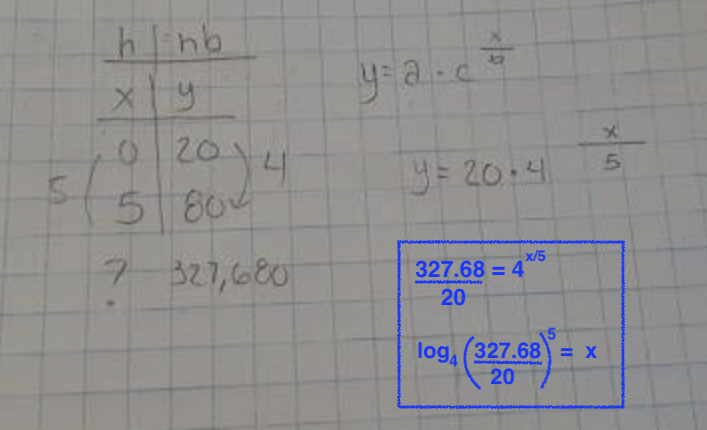 h nb
x y
0 20
5 5 80 4
? 327,680
y = a · c^(x/b)
y = 20 · 4^(x/5)
327.68/20 = 4^(x/5)
log₄(327.68/20)^5 = x